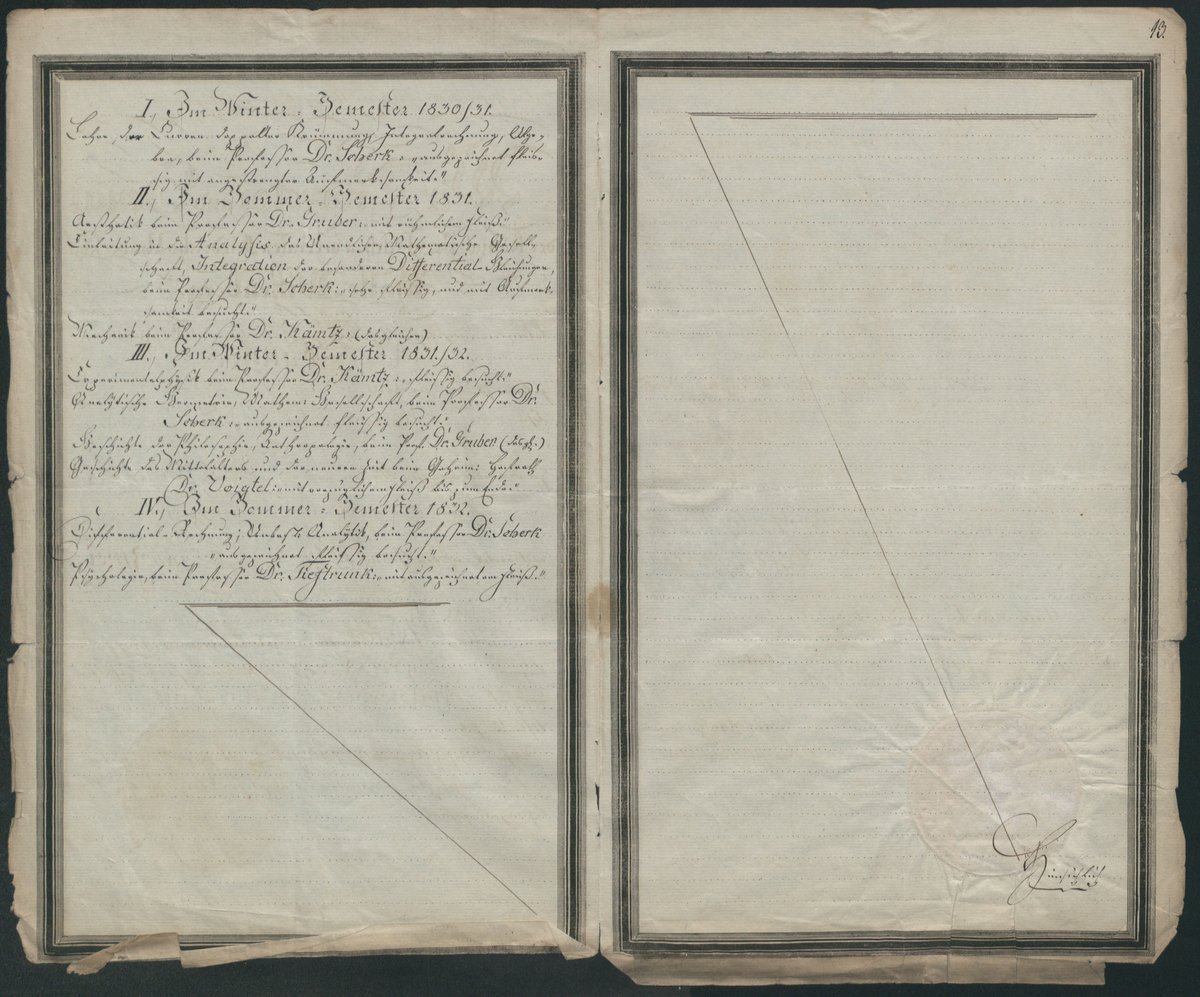 13.
I., Im Winter-Semester 1830/31.
Lehre der Curven doppelter Krümmung, Integralrechnung, Alge-
bra, beim Professor Dr. Scherk: „ausgezeichnet fleis-
sig mit angestrengter Aufmerksamkeit."
II., Im Sommer-Semester 1831.
Aesthetik beim Professor Dr. Gruber: mit rühmlichem Fleiß."
Einleitung in die Analysis des Unendlichen, Mathematische Gesell-
schaft, Integration der besonderen Differential-Gleichungen,
beim Professor Dr. Scherk: „sehr fleissig, und mit Aufmerk-
samkeit besucht."
Mechanik beim Professor Dr. Kämtz, (desgleichen)
III., Im Winter-Semester 1831./32.
Experimentalphysik beim Professor Dr. Kämtz: „fleissig besucht."
Analytische Geometrie, Mathem: Gesellschaft, beim Professor Dr.
Scherk: „ausgezeichnet fleissig besucht."
Geschichte der Philosophie, Anthropologie, beim Prof. Dr. Gruber (desgl.)
Geschichte des Mittelalters und der neueren Zeit beim Geheim: Hofrath
Dr. Voigtel: „mit vorzüglichem Fleiß bis zum Ende."
IV., Im Sommer-Semester 1832.
Differential-Rechnung; Analytik, beim Professor Dr. Scherk
„ausgezeichnet fleissig besucht."
Psychologie, beim Professor Dr. Tieftrunk: „mit ausgezeichnetem Fleiß."